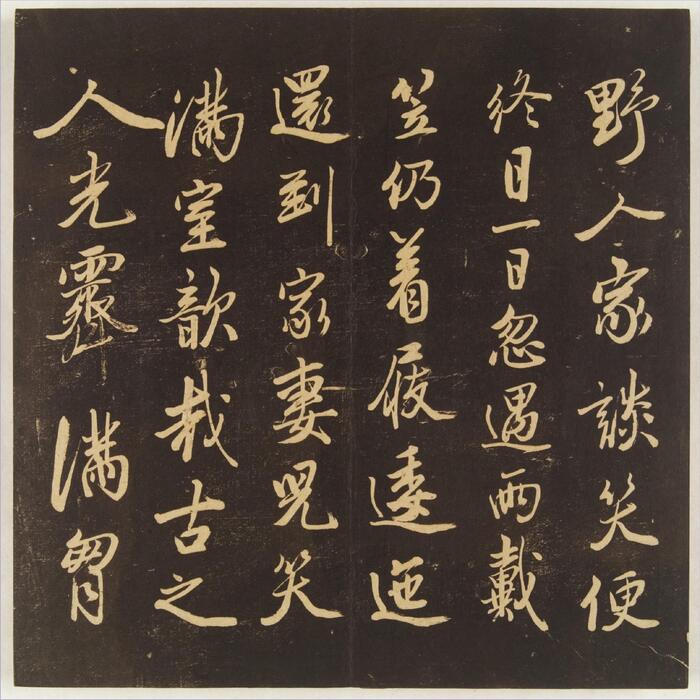 野人家談笑便
終日一日忽遇雨戴
笠仍着屐逶迤
還到家妻兒笑
滿室歆哉古之
人光霽滿胷